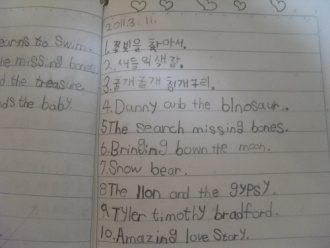 earns to Swim.
the missing bones
d the treasure.
nds the baby.
2011.3.11.
1. 꽃빛을 찾아서.
2. 새들의 생각.
3.
4. Danny anb the bInosaur.
5 The search missing bones.
6. Bringing bown the moon.
7. Snow bear.
8 The lIon and the gypsy.
9. Tyler timothy bradford.
10. Amazing love Story.